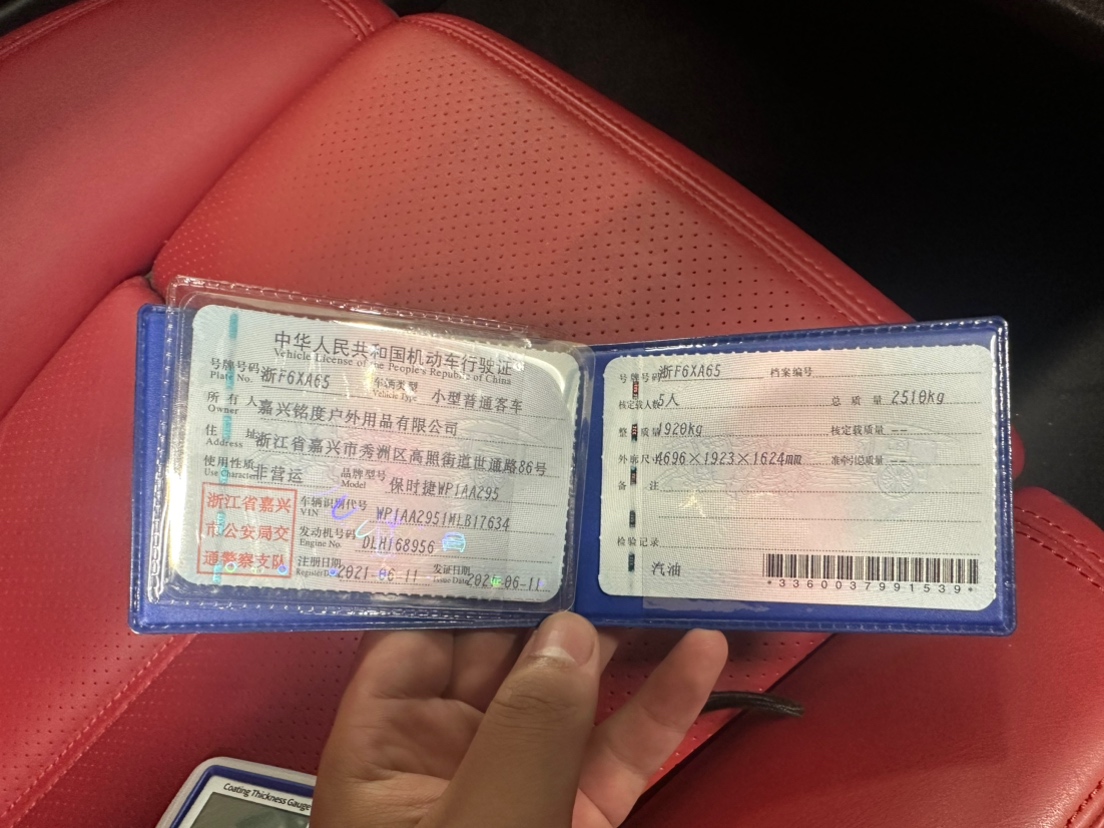 中华人民共和国机动车行驶证
Vehicle License of the People's Republic of China
号牌号码 浙F6XA65 车辆类型 小型普通客车
Plate No. Vehicle Type
所有人 嘉兴铭度户外用品有限公司
Owner
住址 浙江省嘉兴市秀洲区高照街道世通路86号
Address
使用性质 非营运 品牌型号 保时捷WP1AA295
Use Character Model
浙江省嘉兴
市公安局交
通警察支队
车辆识别代号 WP1AA2951MLB17634
VIN
发动机号码 DLH168956
Engine No.
注册日期 2021-06-11 发证日期
Register Issue Date
号牌号码 浙F6XA65 档案编号
核定载人数 5人 总质量 2510kg
整 质量 1920kg 核定载质量 --
外廓尺寸 4696×1923×1624mm 准牵引总质量 --
备注
检验记录
汽油
*3360037991539*
Coating Thickness Gauge